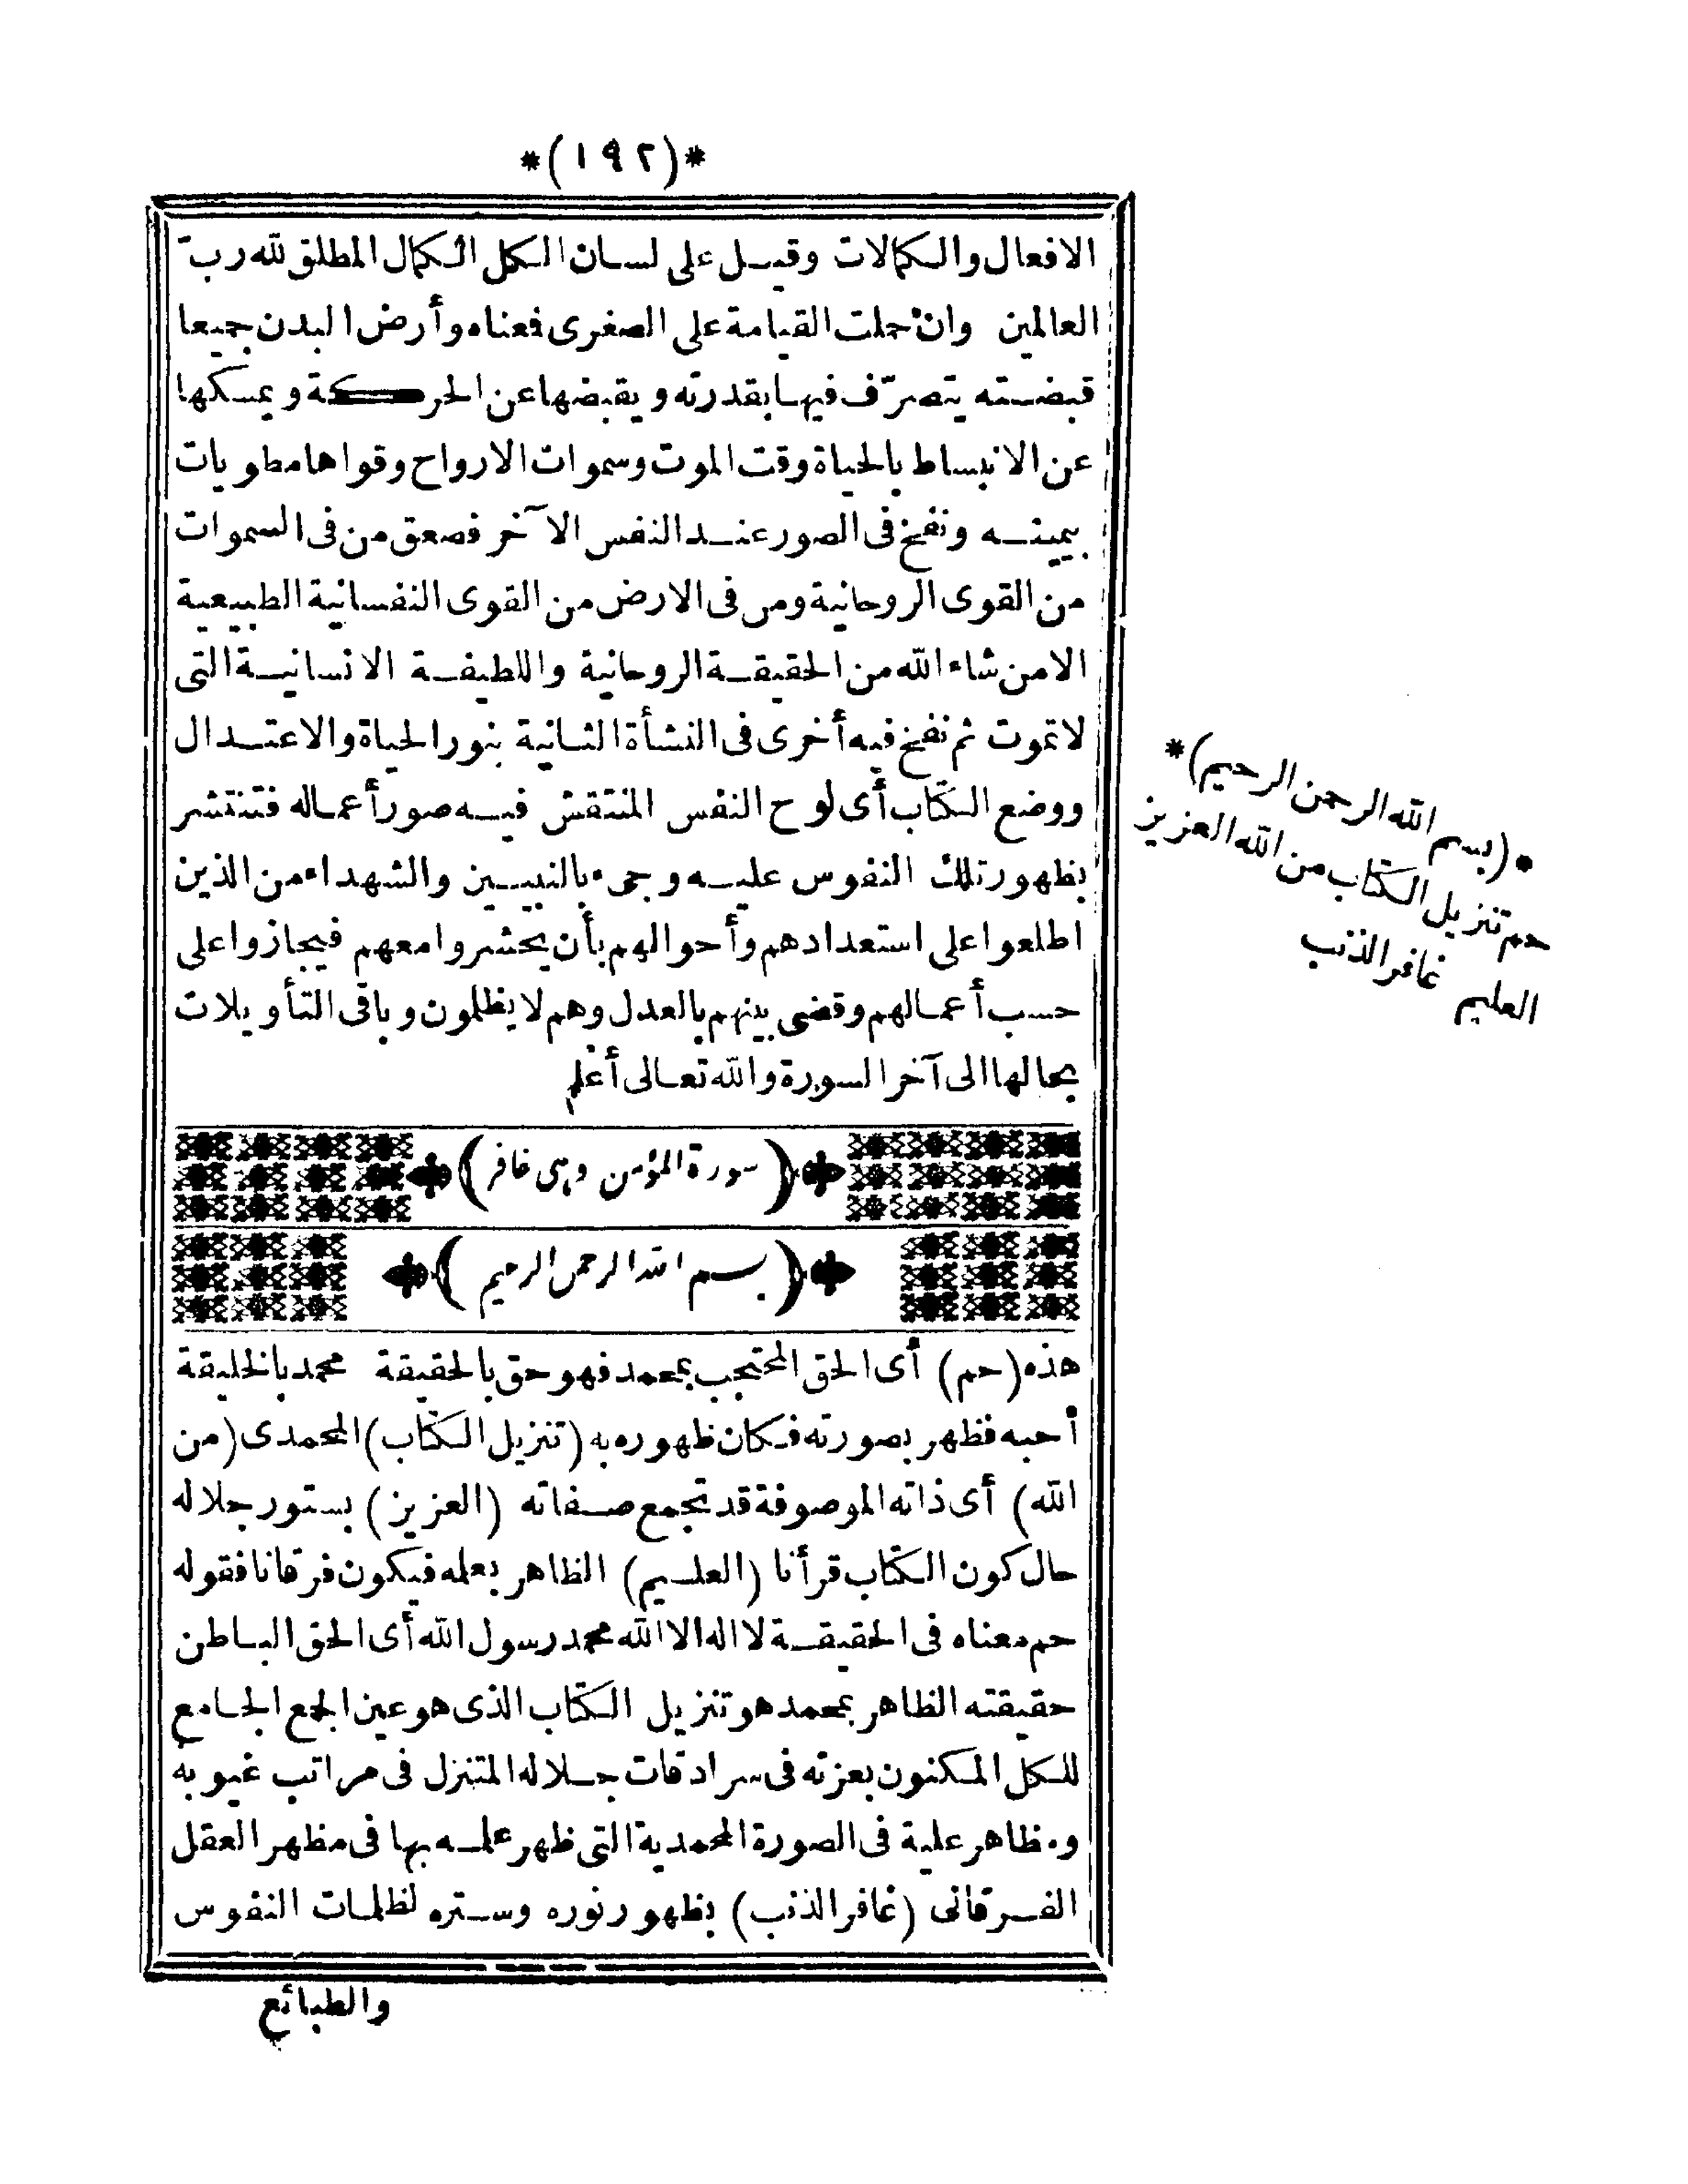 *(١٩٢)*
الافعال والكمالات وقيل على لسان الكل الكمال المطلق لله رب
العالمين وان حملت القيامة على الصغرى فمعناه وأرض البدن جميعا
قبضته يتصرّف فيها بقدرته ويقبضها عن الحركة ويمسكها
عن الانبساط بالحياة وقت الموت وسموات الارواح وقواها مطويات
بيمينه ونفخ فى الصور عند النفس الآخر فصعق من فى السموات
من القوى الروحانية ومن فى الارض من القوى النفسانية الطبيعية
الا من شاء الله من الحقيقة الروحانية واللطيفة الانسانية التى
لا تموت ثم نفخ فيه أخرى فى النشأة الثانية بنور الحياة والاعتدال
ووضع الكتاب أى لوح النفس المنتقش فيه صور أعماله فتنتشر
بظهور تلك النقوس عليه وجىء بالنبيين والشهداء من الذين
اطلعوا على استعدادهم وأحوالهم بأن يحشروا معهم فيجازوا على
حسب أعمالهم وقضى بينهم بالعدل وهم لا يظلمون وباقى التأويلات
بحالها الى آخر السورة والله تعالى أعلم
(سورة المؤمن وهى غافر)
(بسم الله الرحمن الرحيم)
هذه (حم) أى الحق المحتجب بمحمد فهو حق بالحقيقة محمد بالخليقة
أحبه فظهر بصورته فكان ظهوره به (تنزيل الكتاب) المحمدى (من
الله) أى ذاته الموصوفة قد تجمع صفاته (العزيز) بستور جلاله
حال كون الكتاب قرأنا (العليم) الظاهر بعلمه فيكون فرقانا فقوله
حم معناه فى الحقيقة لا اله الا الله محمد رسول الله أى الحق الباطن
حقيقته الظاهر بمحمد هو تنزيل الكتاب الذى هو عين الجمع الجامع
للكل المكنون بعزته فى سرادقات جلاله المتنزل فى مراتب غيوبه
ومظاهر علية فى الصورة المحمدية التى ظهر علمه بها فى مظهر العقل
الفرقانى (غافر الذنب) بظهور نوره وستره لظلمات النفوس
والطبائع
*(بسم الله الرحمن الرحيم)*
حم تنزيل الكتاب من الله العزيز
العليم غافر الذنب